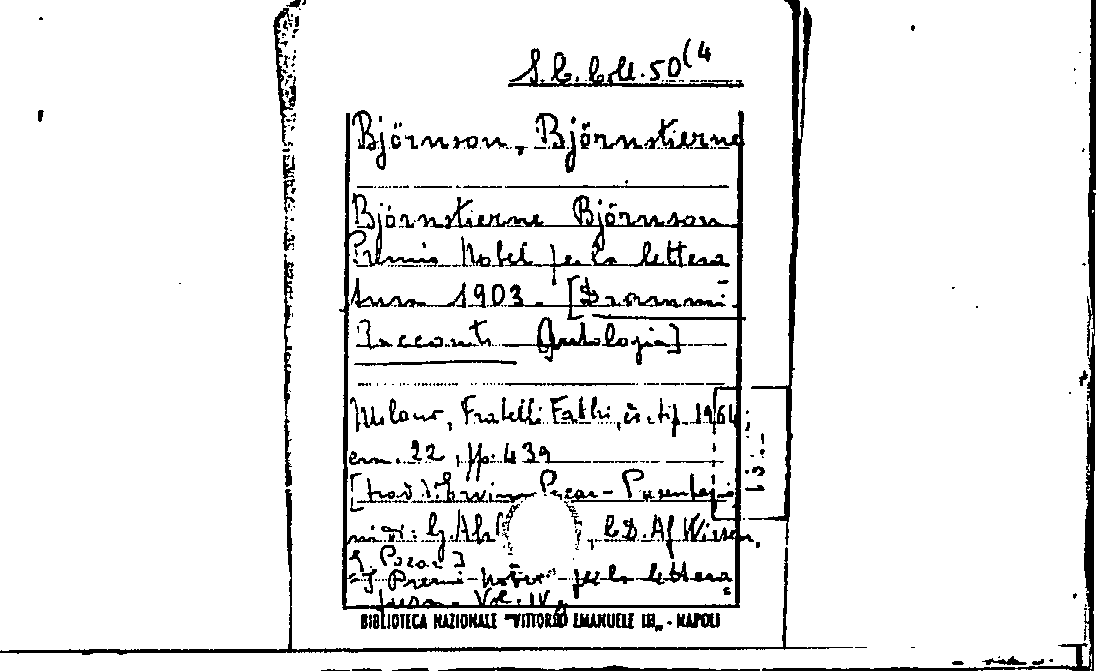 S.C. Coll. 50(4
Björnson, Björnstierne
Björnstierne Björnson
Premio Nobel per la lettera
tura 1903. [Drammi.
Racconti Antologia]
Milano, Fratelli Fabbri, ed. tip. 1964;
cm. 22, pp. 439
[trad. di Ervino Pocar - Presentazio
ni di: G. Ahl , C.D. Af Wirsen,
E. Pocar]
= I Premi Nobel per la lettera=
tura. Vol. IV.
BIBLIOTECA NAZIONALE "VITTORIO EMANUELE III„ - NAPOLI